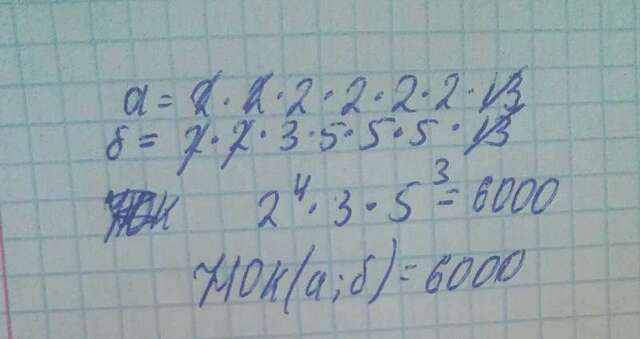 a = 2 · 2 · 2 · 2 · 2 · 2 · 13
б = 2 · 2 · 3 · 5 · 5 · 5 · 13
2⁴ · 3 · 5³ = 6000
НОК(а; б) = 6000